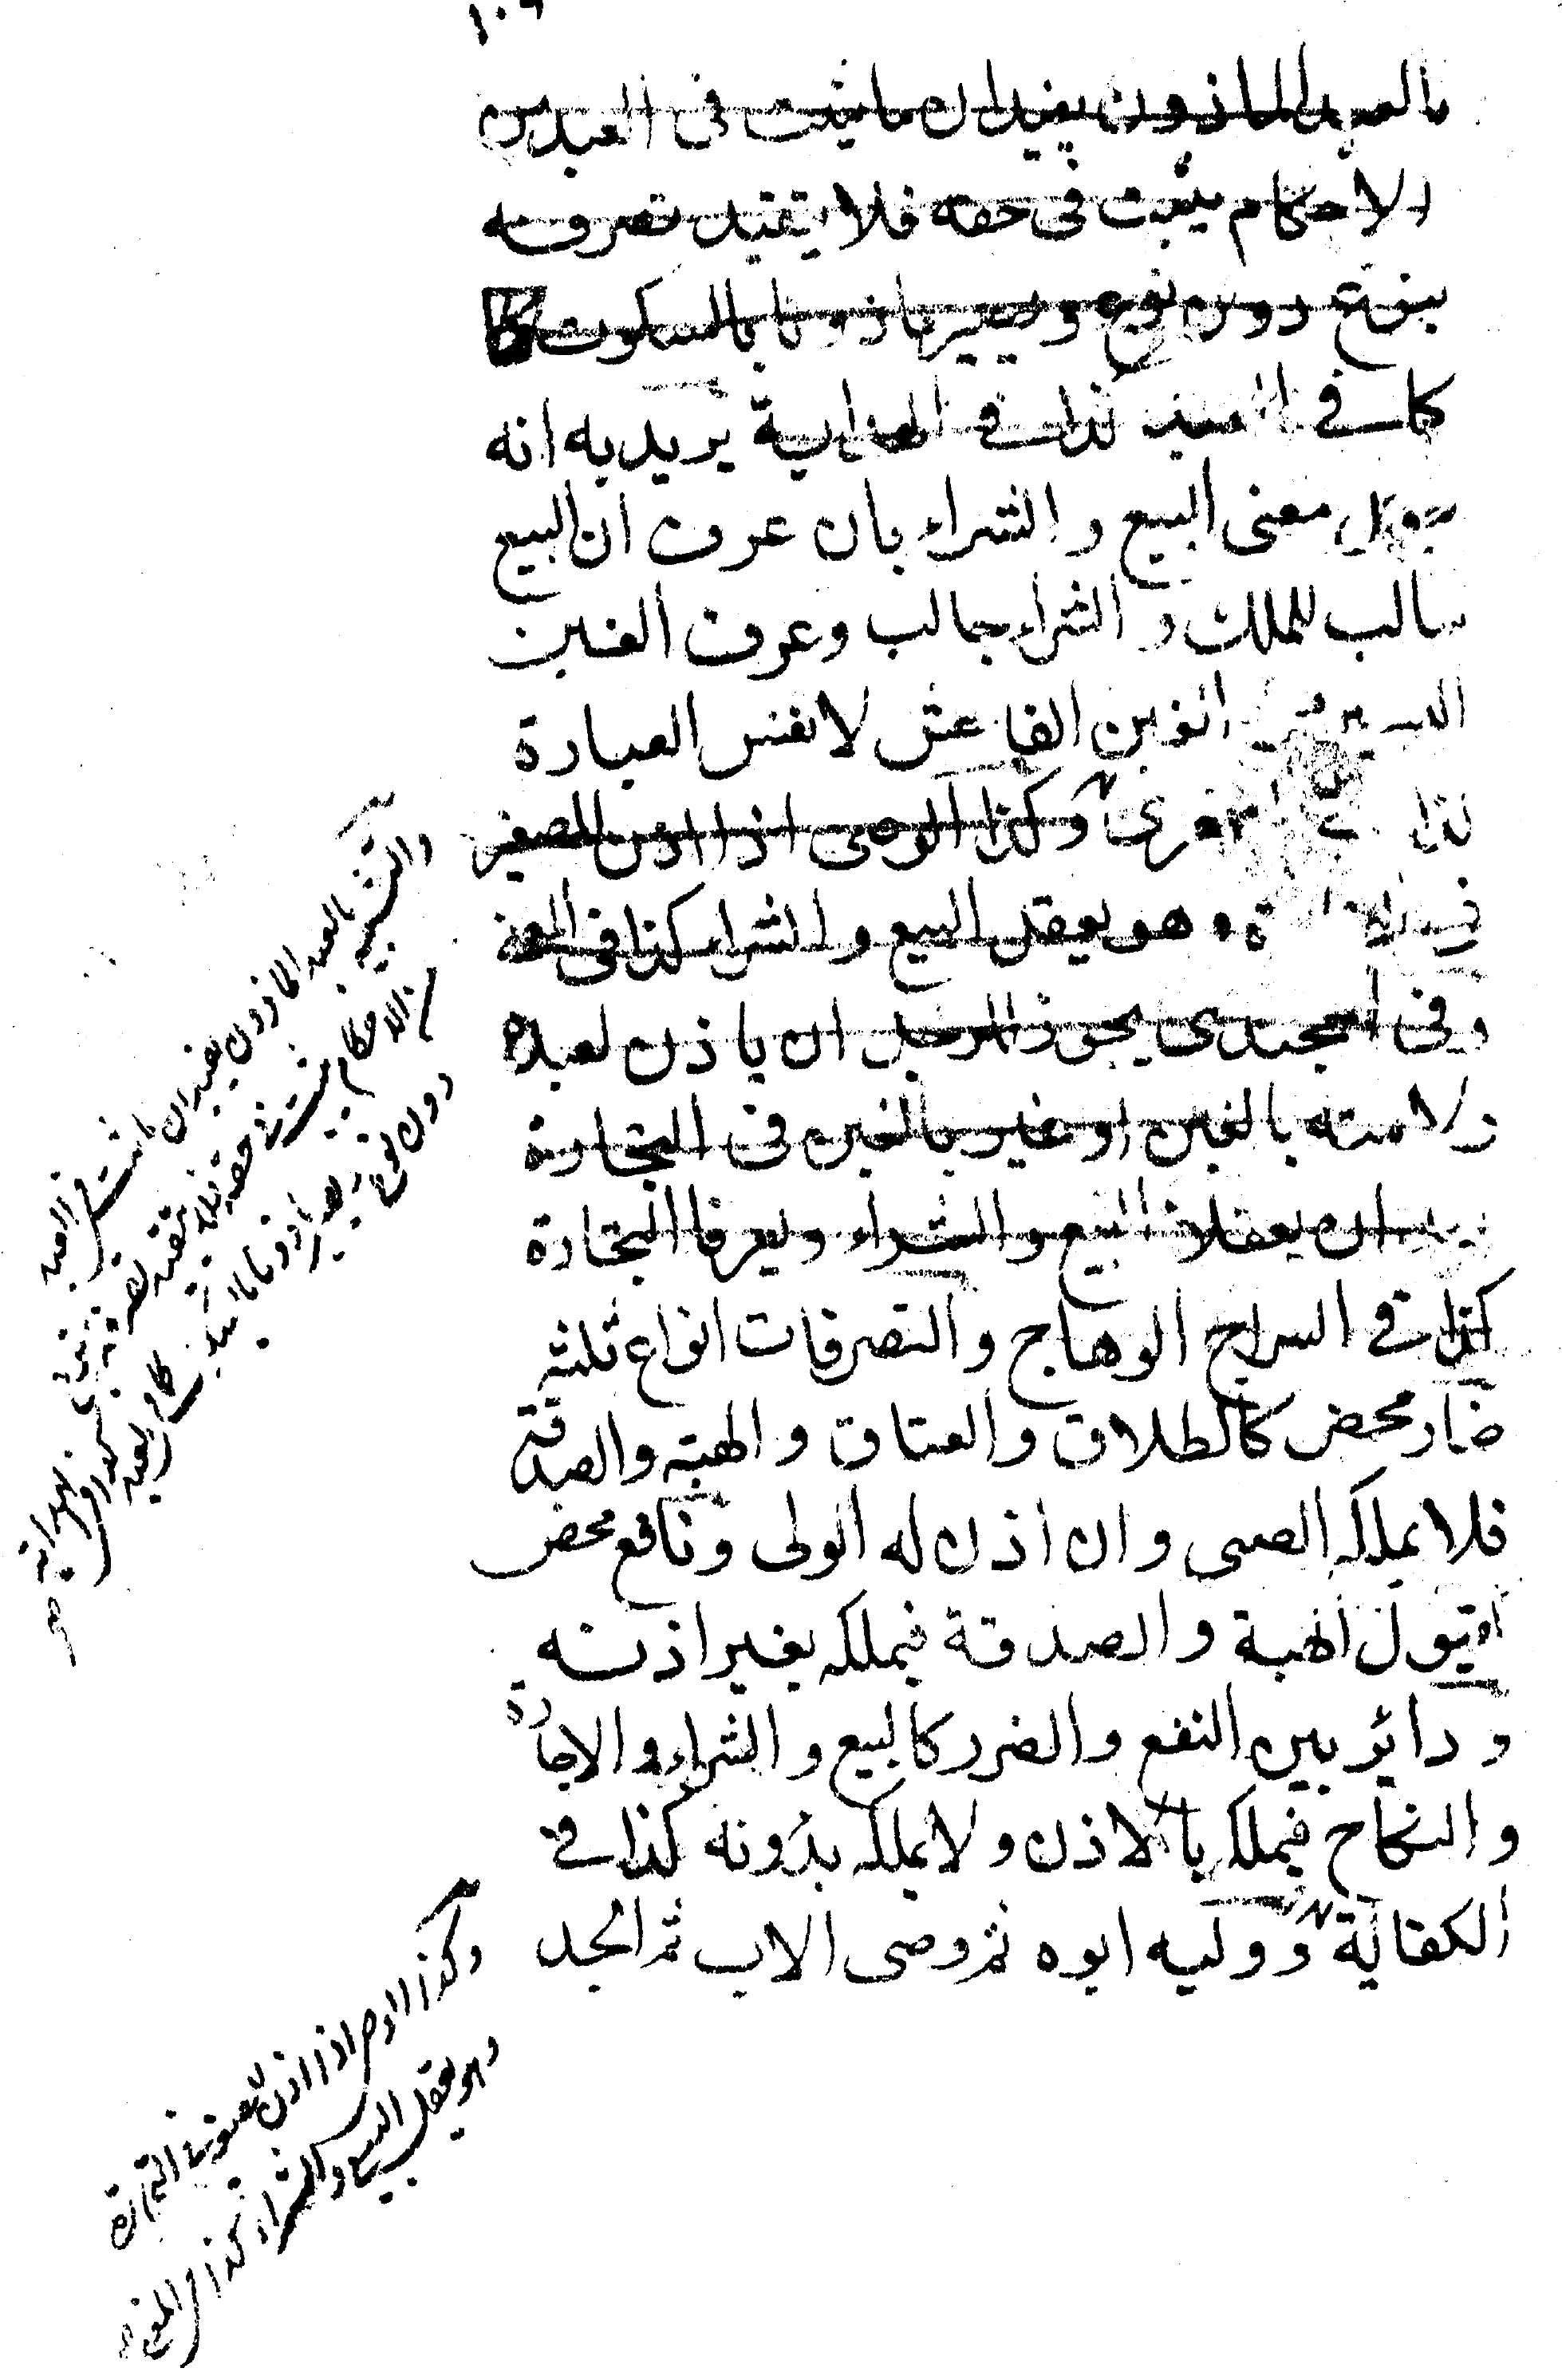 بالعبد المأذون يفيد ان ما يثبت فى العبد من
الاحكام يثبت فى حقه فلا يتقيد تصرفه
بنوع دون نوع ويصير ماذونا بالسكوت
كما فى العبد كذا فى الهداية يريد به انه
يعقل معنى البيع والشراء بان عرف ان البيع
سالب للملك والشراء جالب وعرف الغبن
اليسير من الغبن الفاحش لا نفس العبارة
كذا فى الصغرى وكذا الوصى اذا اذن للصغير
فى التجارة وهو يعقل البيع والشراء كذا فى المغنى
وفى الخجندى يجوز للرجل ان ياذن لعبده
ولامته بالغين او غير بالغين فى التجارة
بعد ان يعقلا البيع والشراء ويعرفا التجارة
كذا فى السراج الوهاج والتصرفات انواع ثلثة
ضار محض كالطلاق والعتاق والهبة والصدقة
فلا يملكه الصبى وان اذن له الولى ونافع محض
كقبول الهبة والصدقة فيملكه بغير اذنه
ودائر بين النفع والضرر كالبيع والشراء والاجارة
والنكاح فيملكه بالاذن ولا يملكه بدونه كذا فى
الكفاية ووليه ابوه ثم وصى الاب ثم الجد
والتشبيه بالعبد الماذون يفيد ان ما يثبت فى العبد
من الاحكام يثبت فى حقه فلا يتقيد تصرفه بنوع
دون نوع ويصير ماذونا بالسكوت كما فى العبد
وكذا الوصى اذا اذن للصغير فى التجارة
وهو يعقل البيع والشراء كذا فى المغنى